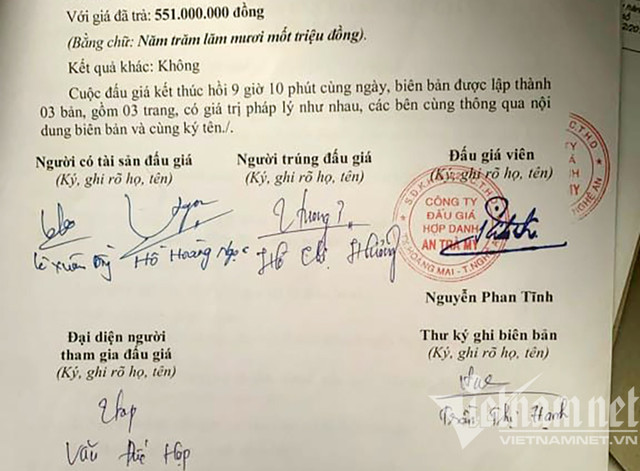 Với giá đã trả: 551.000.000 đồng
(Bằng chữ: Năm trăm lăm mươi mốt triệu đồng).
Kết quả khác: Không
Cuộc đấu giá kết thúc hồi 9 giờ 10 phút cùng ngày, biên bản được lập thành
03 bản, gồm 03 trang, có giá trị pháp lý như nhau, các bên cùng thông qua nội
dung biên bản và cùng ký tên./.
Người có tài sản đấu giá Người trúng đấu giá Đấu giá viên
(Ký, ghi rõ họ, tên) (Ký, ghi rõ họ, tên) (Ký, ghi rõ họ, tên)
CÔNG TY
ĐẤU GIÁ
HỢP DANH
AN TRÀ MY
HOÀNG MAI - T. NGHỆ AN
Lê Xuân Hồ Hoàng Ngọc Hồ Chí
Nguyễn Phan Tĩnh
Đại diện người Thư ký ghi biên bản
tham gia đấu giá (Ký, ghi rõ họ, tên)
(Ký, ghi rõ họ, tên)
Trần Thị Hạnh
Văn Hợp
Vietnamnet
VIETNAMNET.VN